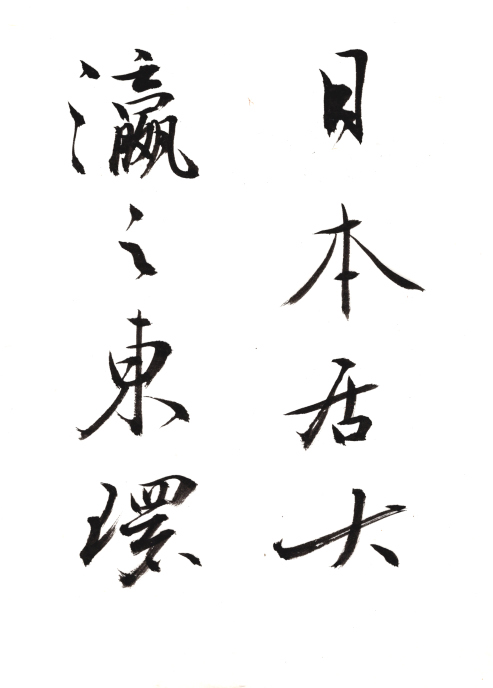 日本居大
瀛之東環